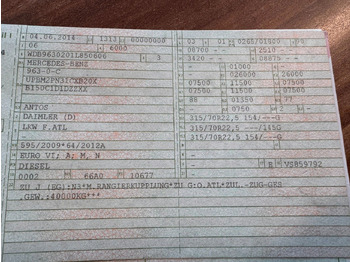 04.06.2014 1313 00000000 03 01 0265/01800
06 6000 08700 - 2510 -
WDB9630201L850606 3 3420 - 08875 -
MERCEDES-BENZ - 01000 -
963-0-C - 026000 26000
07500 11500 07500
07500 11500 07500
88 01350 77
ANTOS - 0750 2 -
DAIMLER (D) 315/70R22,5 154/---G
LKW F.ATL 315/70R22,5 ---/145G
315/70R22,5 154/---G
595/2009*64/2012A
EURO VI; A; M, N
DIESEL E VS859792
0002 66A0 10677
ZU J (EG):N3*M.RANGIERKUPPLUNG*ZU G:O.ATL*ZUL.-ZUG-GES
.GEW.:40000KG***